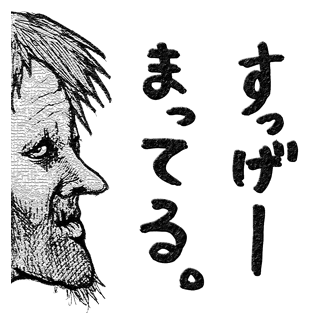 すっげー
まってる。